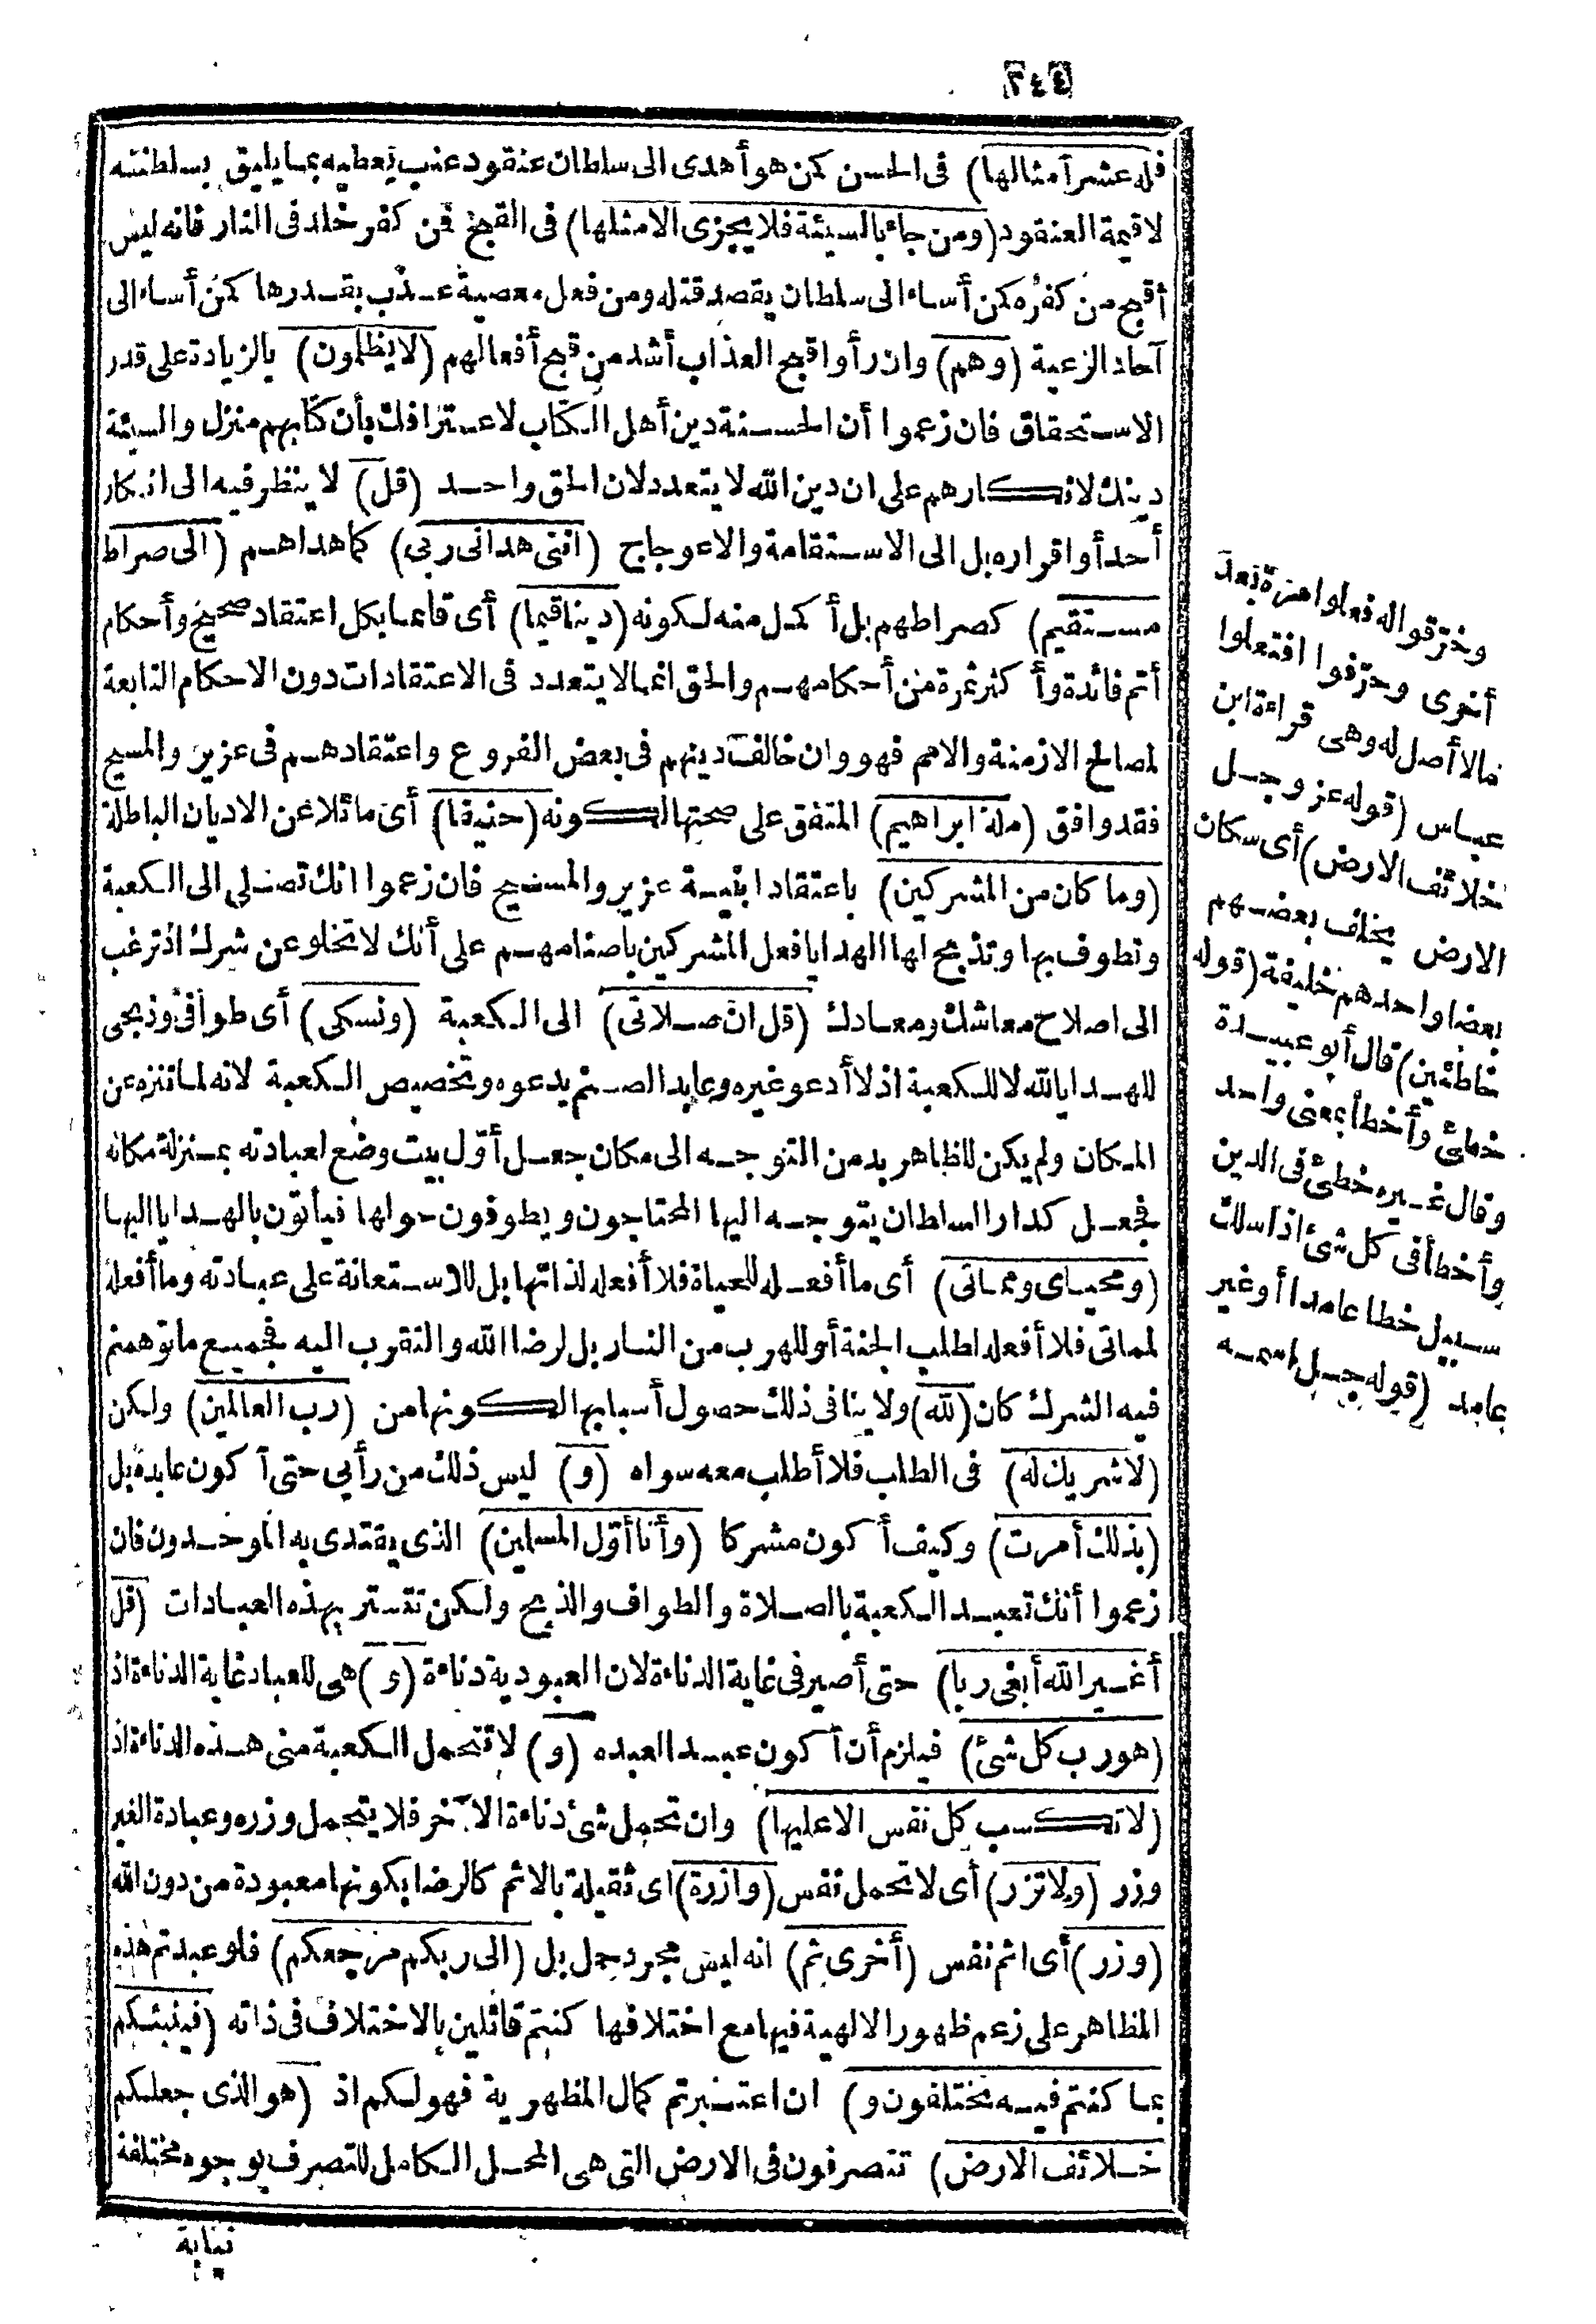 ٢٤٤
فله عشر أمثالها) فى الحسن كمن هو أهدى الى سلطان عنقود عنب يعطيه بما يليق بسلطنته
لا قيمة العنقود (ومن جاء بالسيئة فلا يجزى الا مثلها) فى القبح فمن كفر خلد فى النار فانه ليس
أقبح من كفره كمن أساء الى سلطان يقصد قتله ومن فعل معصية عذب بقدرها كمن أساء الى
آحاد الرعية (وهم) وان رأوا قبح العذاب أشد من قبح أفعالهم (لا يظلمون) بالزيادة على قدر
الاستحقاق فان زعموا أن الحسنة دين أهل الكتاب لاعترافك بأن كتابهم منزل والسيئة
دينك لانكارهم على ان دين الله لا يتعدد لان الحق واحد (قل) لا ينظر فيه الى انكار
أحد أو اقراره بل الى الاستقامة والاعوجاج (اننى هدانى ربى) كما هداهم (الى صراط
مستقيم) كصراطهم بل أكمل منه لكونه (دينا قيما) أى قائما بكل اعتقاد صحيح وأحكام
أتم فائدة وأكثر ثمرة من أحكامهم والحق انما لا يتعدد فى الاعتقادات دون الاحكام التابعة
لمصالح الازمنة والامم فهو وان خالف دينهم فى بعض الفروع واعتقادهم فى عزير والمسيح
فقد وافق (ملة ابراهيم) المتفق على صحتها لكونه (حنيفا) أى مائلا عن الاديان الباطلة
(وما كان من المشركين) باعتقاد ابنية عزير والمسيح فان زعموا انك تصلى الى الكعبة
وتطوف بها وتذبح لها الهدايا فعل المشركين باصنامهم على أنك لا تخلو عن شرك اذ ترغب
الى اصلاح معاشك ومعادك (قل ان صلاتى) الى الكعبة (ونسكى) أى طوافى وذبحى
للهدايا لله لا للكعبة اذ لا أدعو غيره وعابد الصنم يدعوه وتخصيص الكعبة لانه لما تنزه عن
المكان ولم يكن للظاهر بد من التوجه الى مكان جعل أوّل بيت وضع لعبادته بمنزلة مكانه
فجعل كدار السلطان يتوجه اليها المحتاجون ويطوفون حولها فيأتون بالهدايا اليها
(ومحياى ومماتى) أى ما أفعله للحياة فلا أفعله لذاتها بل للاستعانة على عبادته وما أفعله
لمماتى فلا أفعله لطلب الجنة أو للهرب من النار بل لرضا الله والتقرب اليه فجميع ما توهمتم
فيه الشرك كان (لله) ولا ينافى ذلك حصول أسبابها لكونها من (رب العالمين) ولكن
(لا شريك له) فى الطلب فلا أطلب معه سواه (و) ليس ذلك من رأيى حتى أكون عابده بل
(بذلك أمرت) وكيف أكون مشركا (وأنا أوّل المسلمين) الذى يقتدى به الموحدون فان
زعموا أنك تعبد الكعبة بالصلاة والطواف والذبح ولكن تتستر بهذه العبادات (قل
أغير الله أبغى ربا) حتى أصير فى غاية الدناءة لان العبودية دناءة (و) هى للعباد غاية الدناءة اذ
(هو رب كل شئ) فيلزم أن أكون عبد العبده (و) لا تتحمل الكعبة منى هذه الدناءة اذ
(لا تكسب كل نفس الا عليها) وان تحمل شئ دناءة الآخر فلا يتحمل وزره وعبادة الغير
وزر (ولا تزر) أى لا تحمل نفس (وازرة) اى ثقيلة بالاثم كالرضا بكونها معبودة من دون الله
(وزر) أى اثم نفس (أخرى ثم) انه ليس مجرد حمل بل (الى ربكم مرجعكم) فلو عبدتم هذه
المظاهر على زعم ظهور الالهية فيها مع اختلافها كنتم قائلين بالاختلاف فى ذاته (فينبئكم
بما كنتم فيه تختلفون و) ان اعتبرتم كمال المظهرية فهو لكم اذ (هو الذى جعلكم
خلائف الارض) تتصرفون فى الارض التى هى المحل الكامل للتصرف بوجوه مختلفة
نيابة
وخرقوا له فعلوا مرة بعد
أخرى وحرّفوا افتعلوا
مالا أصل له وهى قراءة ابن
عباس (قوله عز وجل
خلائف الارض) أى سكان
الارض يخلف بعضهم
بعضا واحدهم خليفة (قوله
خاطئين) قال أبو عبيدة
خطئ وأخطأ بمعنى واحد
وقال غيره خطئ فى الدين
وأخطأ فى كل شئ اذا سلك
سبيل خطا عامدا أو غير
عامد (قوله جل اسمه